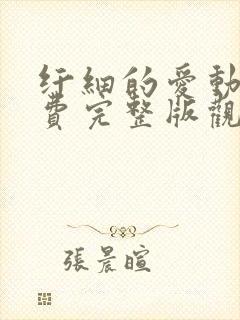 纤細的愛動
費完整版觀
張晨暄